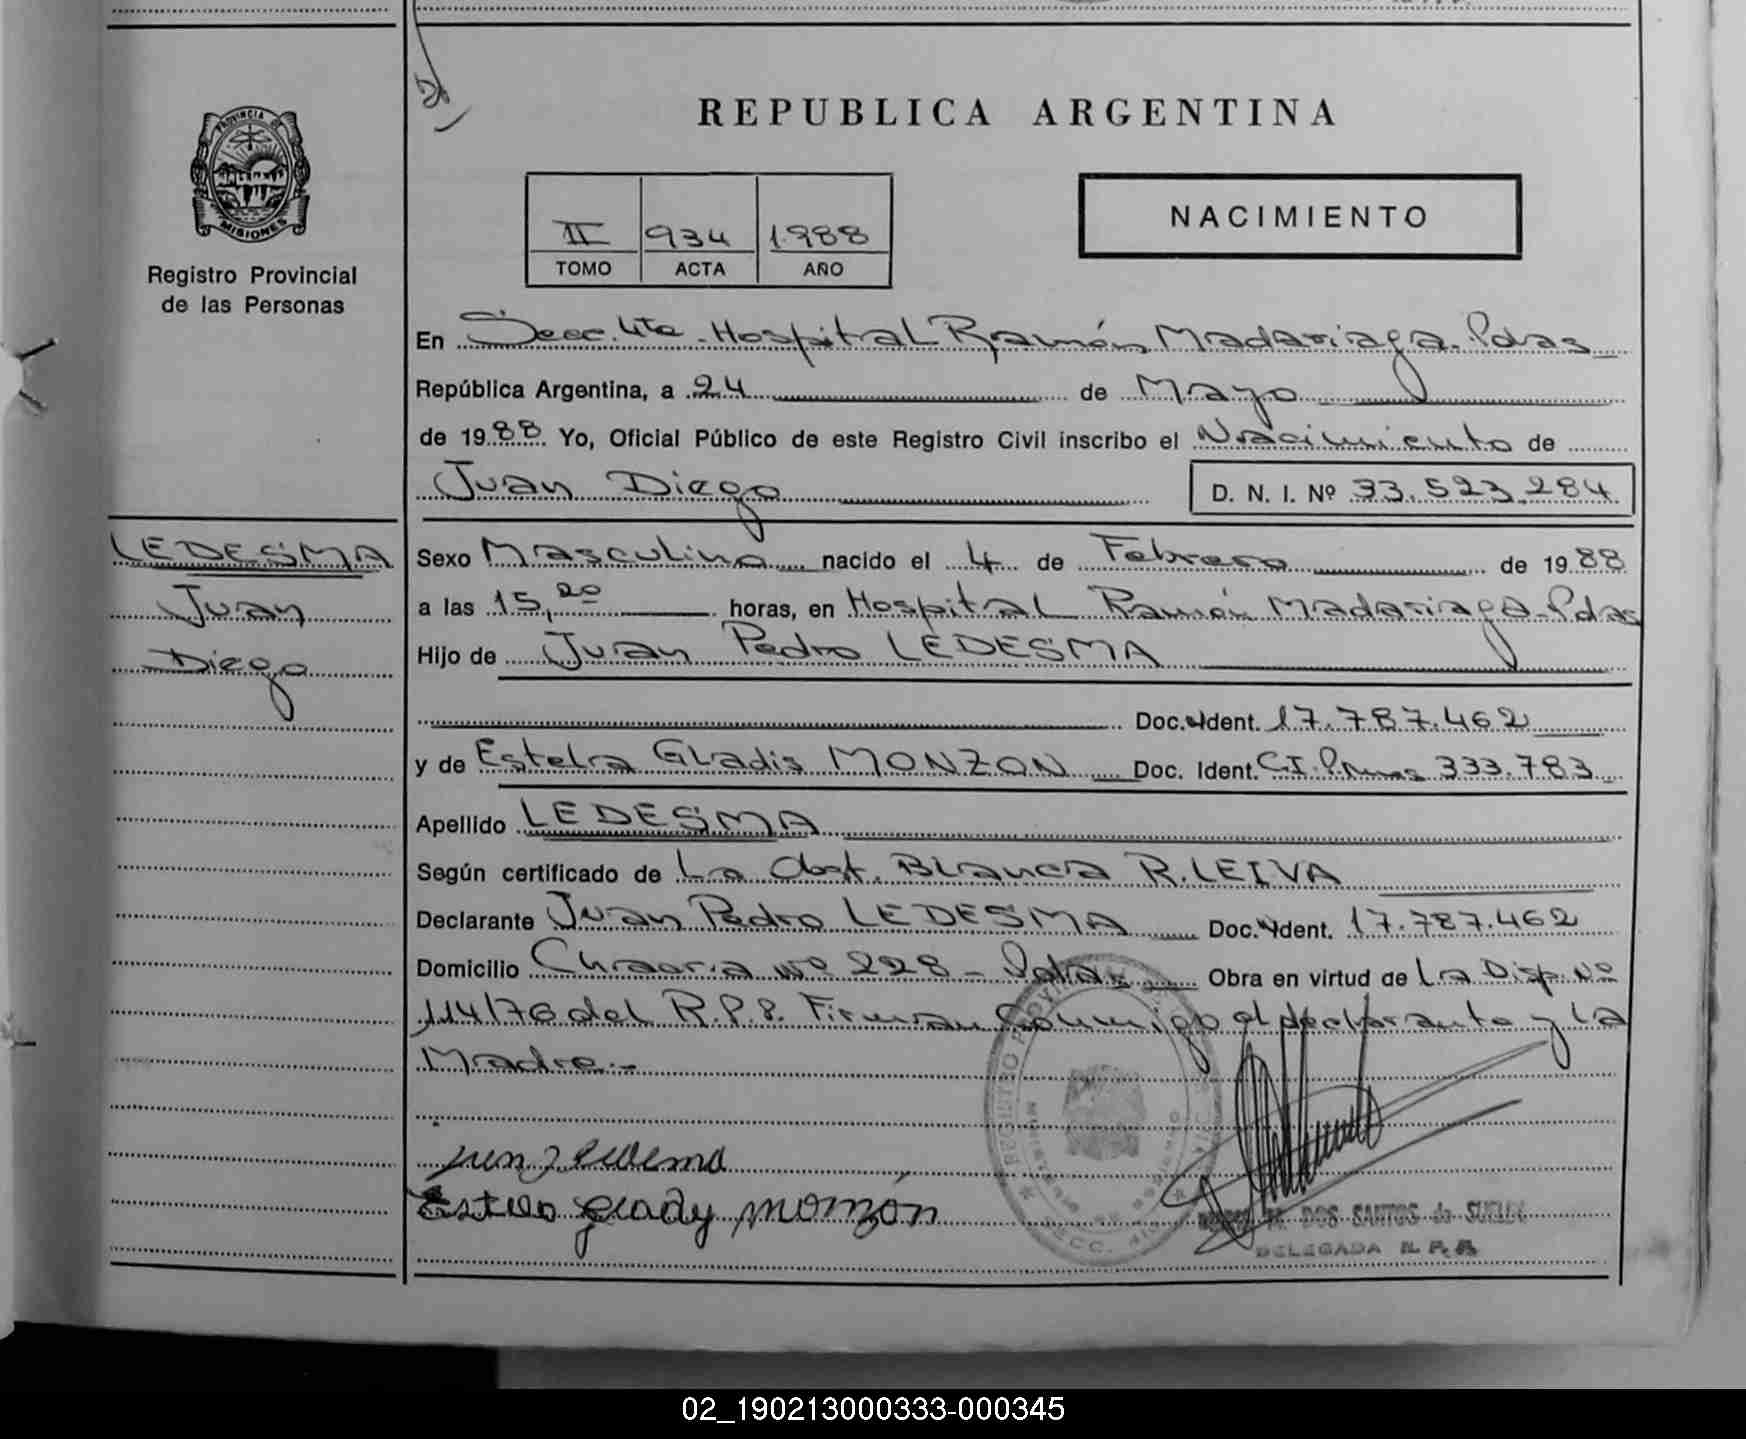 REPUBLICA ARGENTINA
PROVINCIA DE
MISIONES
Registro Provincial
de las Personas
II 934 1.988
TOMO ACTA AÑO
NACIMIENTO
En Secc. 4ta. Hospital Ramón Madariaga. Pdas
República Argentina, a 24 de Mayo
de 1988 Yo, Oficial Público de este Registro Civil inscribo el Nacimiento de
Juan Diego D. N. I. Nº 33.523.284
LEDESMA
Juan
Diego
Sexo Masculino nacido el 4 de Febrero de 1988
a las 15,20 horas, en Hospital Ramón Madariaga-Pdas
Hijo de Juan Pedro LEDESMA
Doc. Ident. 17.787.462
y de Estela Gladis MONZON Doc. Ident. CI. Pmnes 333.783
Apellido LEDESMA
Según certificado de La Obst. Blanca R. LEIVA
Declarante Juan Pedro LEDESMA Doc. Ident. 17.787.462
Domicilio Nº 228 - Pdas Obra en virtud de La Disp. Nº
114/76 del R.P.P. Firman Conmigo el declarante y La
Madre.-
Estela glady monzón
REGISTRO PROVINCIAL
SECC. 4
M. DOS SANTOS de
DELEGADA R. P. P.
02_190213000333-000345